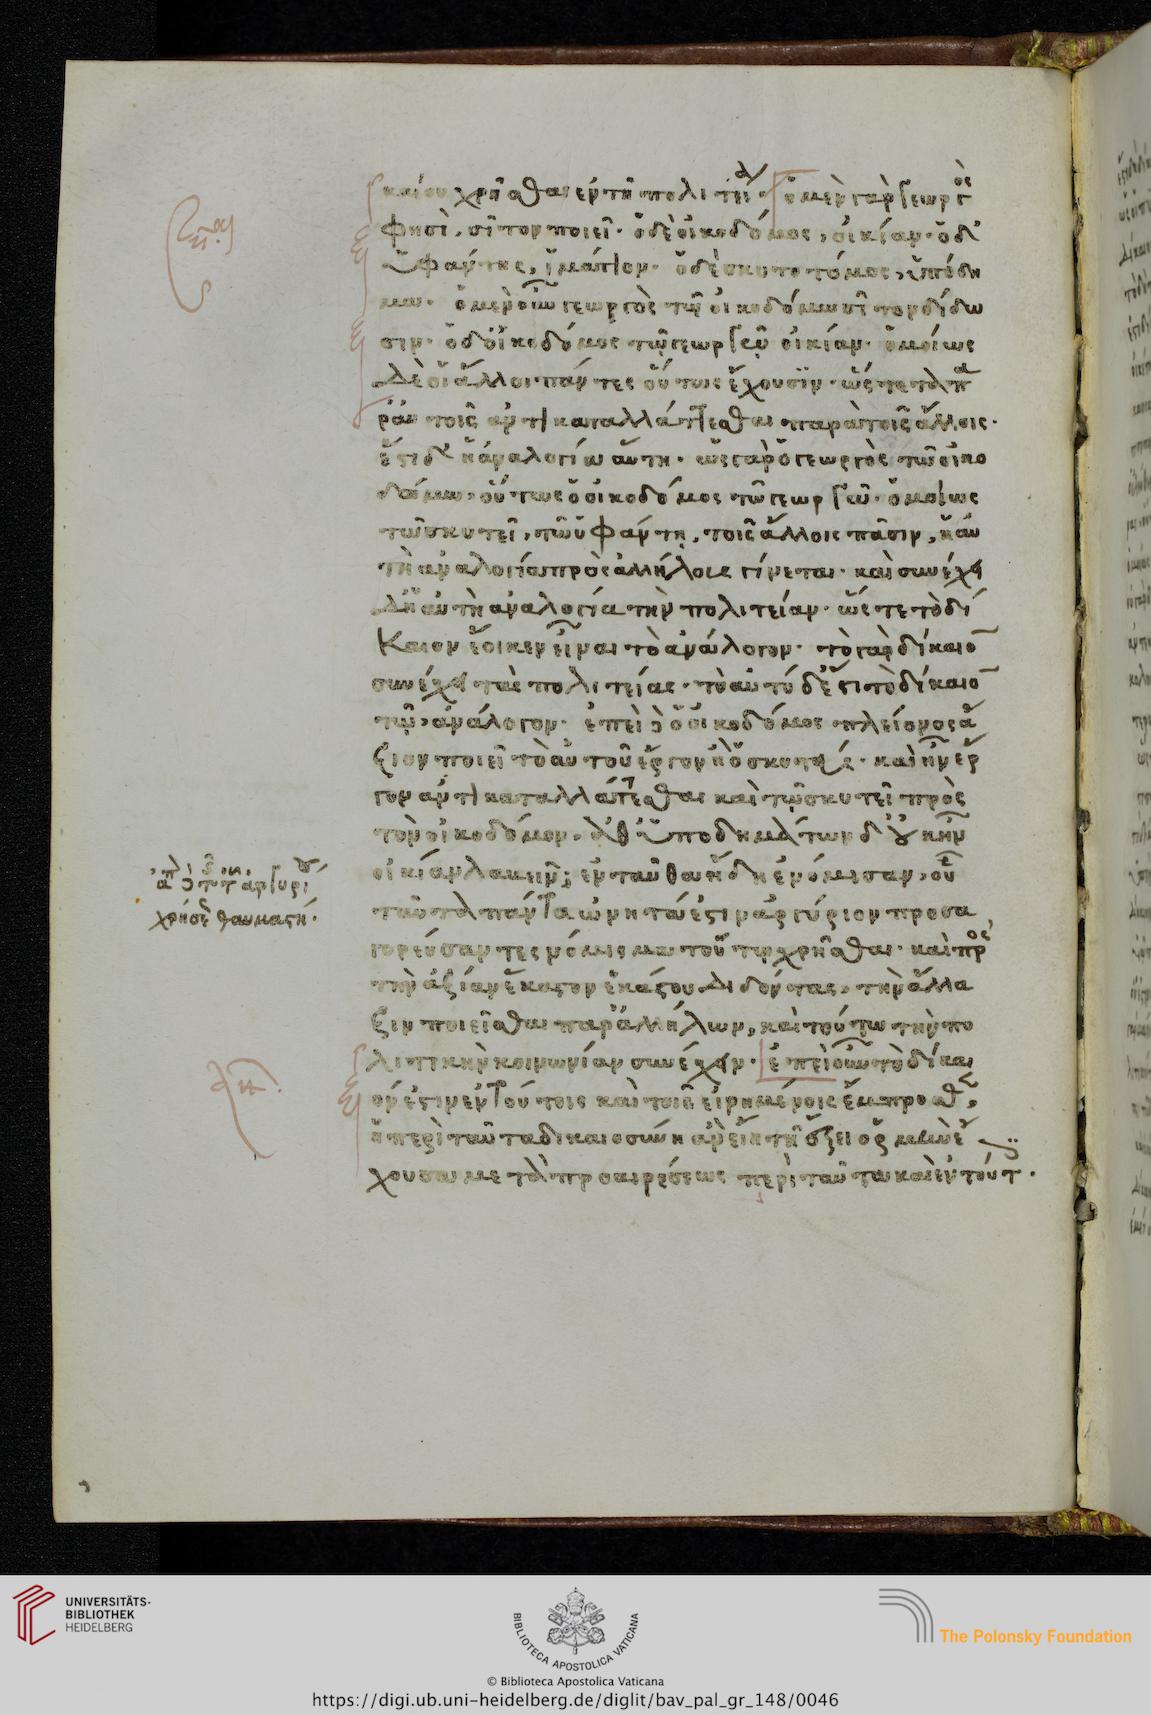 καίου χρῆσθαι ἐν τῆ πολιτεία· ὁ μὲν γὰρ γεωργὸς
φησὶ, σῖτον ποιεῖ· ὁ δὲ οἰκοδόμος, οἰκίαν· ὁ δ'
ὑφάντης, ἱμάτιον· ὁ δὲ σκυτοτόμος, ὑπόδη
μα· ὁ μὲν οὖν γεωργὸς τῶ οἰκοδόμω σῖτον δίδω
σιν· ὁ δ' οἰκοδόμος τῶ γεωργῶ οἰκίαν· ὁμοίως
δὲ οἱ ἄλλοι πάντες οὕτως ἔχουσϊν· ὥστε τὰ π
ρ' αὐτοῖς ἀντικαταλλάττεσθαι παρὰ τοῖς ἄλλοις·
ἔστι δ' ἡ ἀναλογία αὕτη· ὡς γὰρ ὁ γεωργὸς τῶ οἰκο
δόμω, οὕτως ὁ οἰκοδόμος τῶ γεωργῶ· ὁμοίως
τῶ σκυτεῖ, τῶ ὑφάντη, τοῖς ἄλλοις πᾶσιν, ἡ αὐ
τὴ ἀναλογία πρὸς ἀλλήλους γίνεται· καὶ συνέχει
δὴ αὐτὴ ἀναλογία τὴν πολιτείαν· ὥστε τὸ δί
καιον ἔοικεν εἶναι τὸ ἀνάλογον· τὸ γὰρ δίκαιον
συνέχει τὰς πολιτείας· τὸ αὐτὸ δέ ἐστι τὸ δίκαιον
τῶ ἀνάλογον· ἐπεὶ δὲ ὁ οἰκοδόμος πλείονος ἄ
ξιον ποιεῖ τὸ αὑτοῦ ἔργον ἢ ὁ σκυτεύς· καὶ ἦν ἔρ
γον ἀντικαταλλάττεσθαι καὶ τῶ σκυτεῖ πρὸς
τὸν οἰκοδόμον, ἀνθ' ὑποδημάτων δ' οὐκ ἦν
οἰκίαν λαβεῖν; ἐνταῦθα ἤδη ἐνόμισαν, οὗ
ταῦτα πάντα ὠνητά ἐστιν ἀργύριον προσα
γορεύσαντες νόμισμα τούτω χρῆσθαι· καὶ πρὸς
τὴν ἀξίαν ἕκαστον ἑκάστου διδόντας, τὴν ἄλλα
ξιν ποιεῖσθαι παρ' ἀλλήλων, καὶ τούτω τὴν πο
λιτικὴν κοινωνίαν συνέχειν· ἐπεὶ οὖν τὸ δίκαι
όν ἐστιν ἐν τούτοις καὶ τοῖς εἰρημένοις ἔμπροσθεν,
ἡ περὶ ταῦτα δικαιοσύνη ἂν εἴη τῆ ἕξει ὁρμὴν ἔ
χουσα μετὰ προαιρέσεως περὶ ταῦτα καὶ ἐν τούτοις·
χρῆσις θαυμαστή·
UNIVERSITÄTS-
BIBLIOTHEK
HEIDELBERG
BIBLIOTECA APOSTOLICA VATICANA
The Polonsky Foundation
© Biblioteca Apostolica Vaticana
https://digi.ub.uni-heidelberg.de/diglit/bav_pal_gr_148/0046